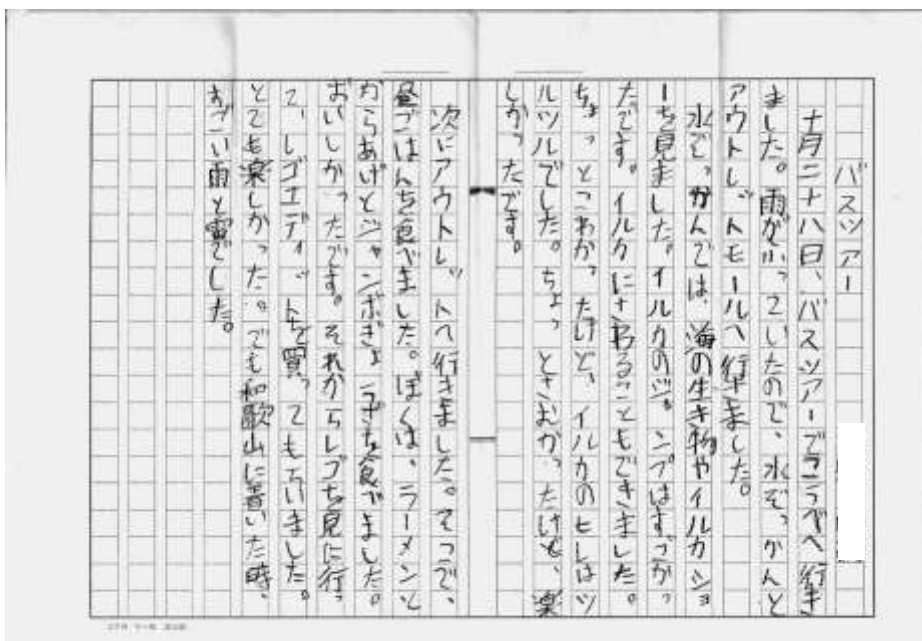 バスツアー
十月二十八日、バスツアーでこうべへ行き
ました。雨がふっていたので、水ぞっかんと
アウトレットモールへ行きました。
水ぞっかんでは、海の生き物やイルカショ
ーを見ました。イルカのジャンプはすごかっ
たです。イルカにさわることもできました。
ちょっとこわかったけど、イルカのヒレはツ
ルツルでした。ちょっとさむかったけど、楽
しかったです。
次にアウトレットへ行きました。そこで、
昼ごはんを食べました。ぼくは、ラーメンと
からあげとジャンボぎょうざを食べました。
おいしかったです。それからレゴを見に行っ
て、レゴエディットを買ってもらいました。
とても楽しかった。でも和歌山に着いた時、
すごい雨と雷でした。